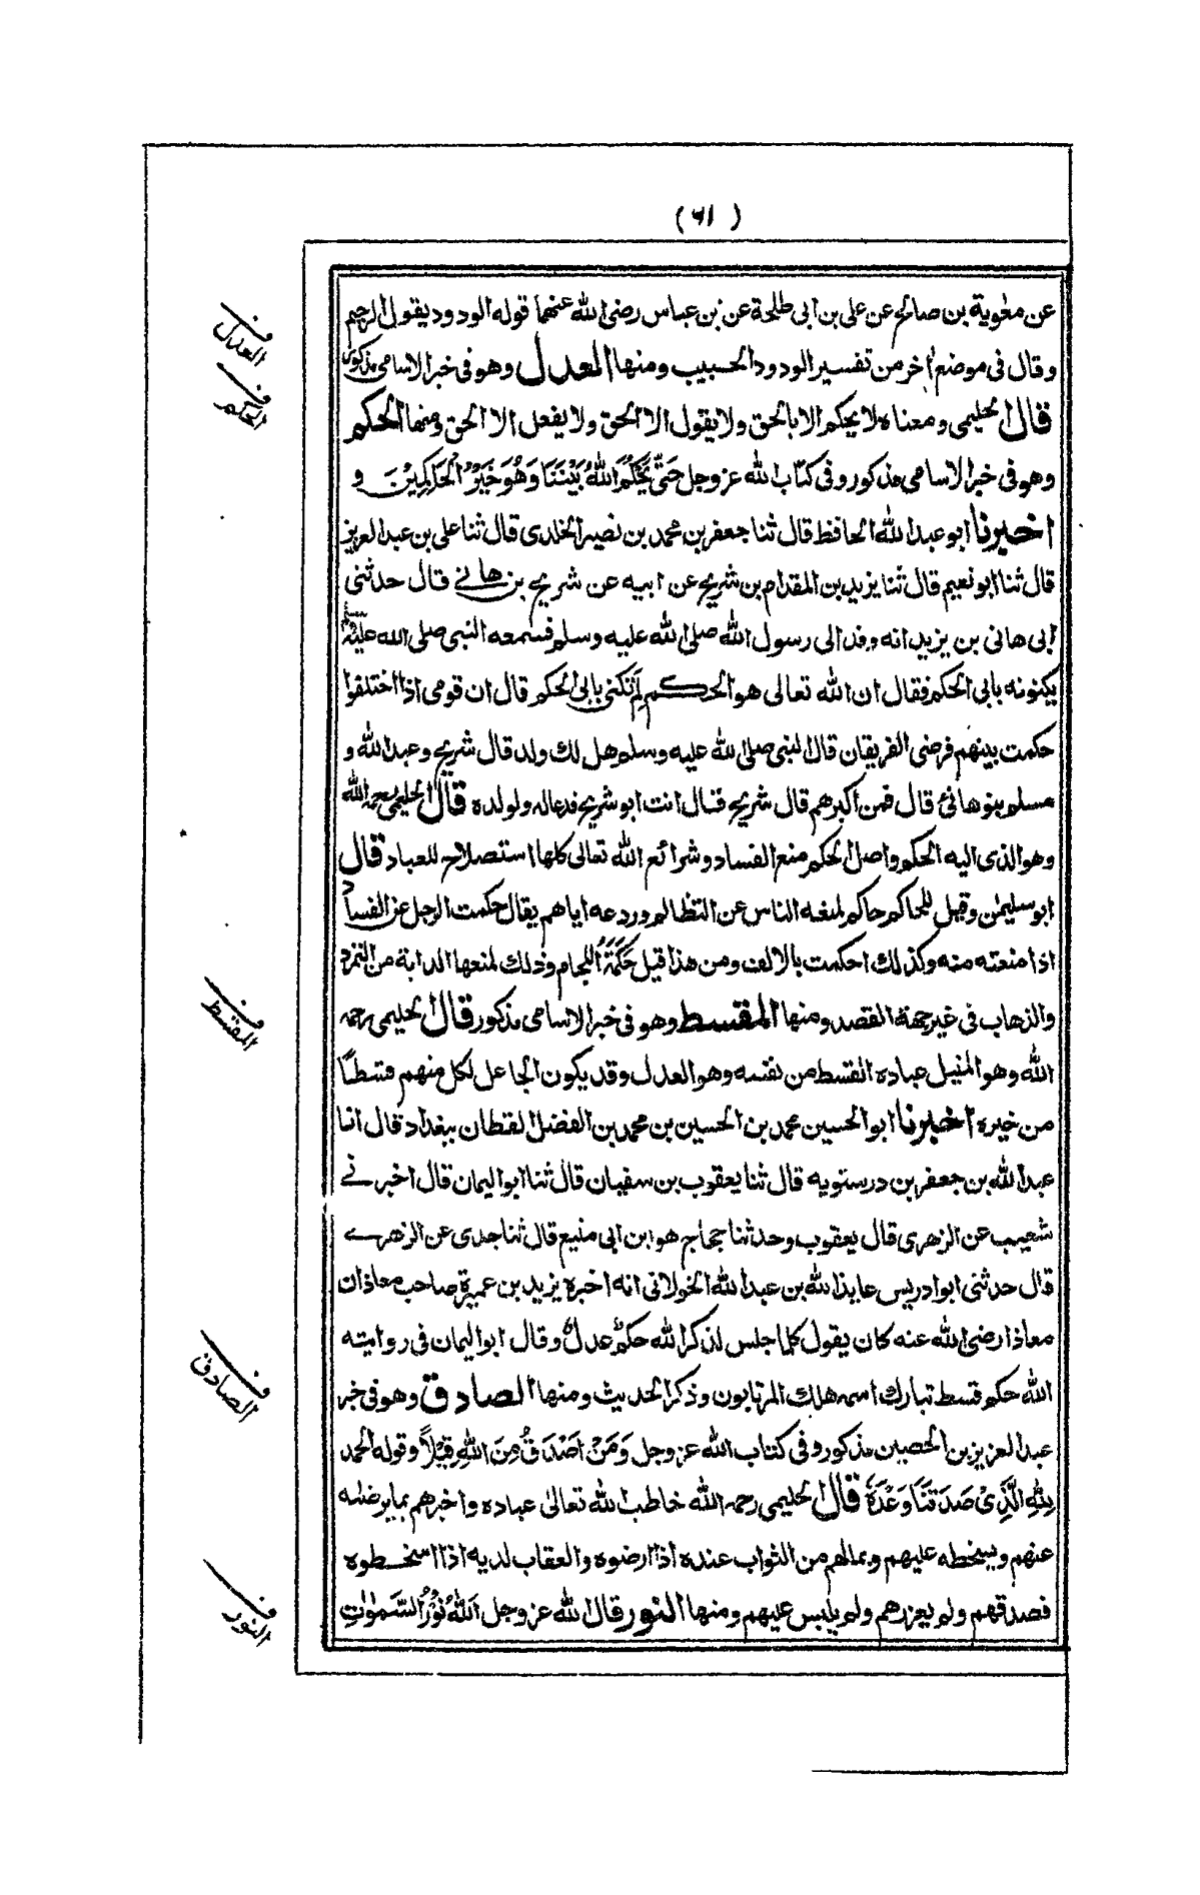 (٦١)
عن معوية بن صالح عن على بن ابى طلحة عن بن عباس رضى الله عنهما قوله الودود يقول الرحيم
وقال فى موضع اخر من تفسير الودود الحبيب ومنها العدل وهو فى خبر الاسامى مذكور
قال الحليمى ومعناه لا يحكم الا بالحق ولا يقول الا الحق ولا يفعل الا الحق ومنها الحكم
وهو فى خبر الاسامى مذكور وفى كتاب الله عز وجل حَتّٰى يَحْكُمَ اللّٰهُ بَيْنَنَا وَهُوَ خَيْرُ الْحَاكِمِيْنَ و
اخبرنا ابو عبد الله الحافظ قال ثنا جعفر بن محمد بن نصير الخلدى قال ثنا على بن عبد العزيز
قال ثنا ابو نعيم قال ثنا يزيد بن المقدام بن شريح عن ابيه عن شريح بن هانى قال حدثنى
ابى هانى بن يزيد انه وفد الى رسول الله صلى الله عليه وسلم فسمعه النبى صلى الله عليه وسلم
يكنونه بابى الحكم فقال ان الله تعالى هو الحكم لِمَ تكنى بابى الحكم قال ان قومى اذا اختلفوا
حكمت بينهم فرضى الفريقان قال النبى صلى الله عليه وسلم هل لك ولد قال شريح وعبد الله و
مسلم بنو هانئ قال فمن اكبرهم قال شريح قال انت ابو شريح فدعا له ولولده قال الحليمى رحمه الله
وهو الذى اليه الحكم واصل الحكم منع الفساد وشرائع الله تعالى كلها استصلاح للعباد قال
ابو سليمٰن وقيل للحاكم حاكم لمنعه الناس عن التظالم وردعه اياهم يقال حكمت الرجل عن الفساد
اذا منعته منه وكذلك احكمت بالالف ومن هذا قيل حَكَمَةُ اللجام وذلك لمنعها الدابة من التمرد
والذهاب فى غير جهة القصد ومنها المقسط وهو فى خبر الاسامى مذكور قال الحليمى رحمه
الله وهو المنيل عباده القسط من نفسه وهو العدل وقد يكون الجاعل لكل منهم قسطًا
من خيره اخبرنا ابو الحسين محمد بن الحسين بن محمد بن الفضل القطان ببغداد قال انا
عبد الله بن جعفر بن درستويه قال ثنا يعقوب بن سفيان قال ثنا ابو اليمان قال اخبرنے
شعيب عن الزهرى قال يعقوب وحدثنا حجاج هو ابن ابى منيع قال ثنا جدى عن الزهرے
قال حدثنى ابو ادريس عايذ الله بن عبد الله الخولانى انه اخبره يزيد بن عميرة صاحب معاذ ان
معاذا رضى الله عنه كان يقول كلما جلس لذكر الله حكم عدل وقال ابو اليمان فى روايته
الله حكم قسط تبارك اسمه هلك المرتابون وذكر الحديث ومنها الصادق وهو فى خبر
عبد العزيز بن الحصين مذكور وفى كتاب الله عز وجل وَمَنْ اَصْدَقُ مِنَ اللّٰهِ قِيْلًا وقوله الحمد
لِلّٰهِ الَّذِىْ صَدَقَنَا وَعْدَهٗ قال الحليمى رحمه الله خاطب الله تعالىٰ عباده واخبرهم بما يرضيه
عنهم ويسخطه عليهم وبمالهم من الثواب عنده اذا ارضوه والعقاب لديه اذا اسخطوه
فصدقهم ولم يعزرهم ولم يلبس عليهم ومنها النور قال الله عز وجل اَللّٰهُ نُوْرُ السَّمٰوٰتِ
ف العدل
ف الحكم
ف المقسط
ف الصادق
ف النور